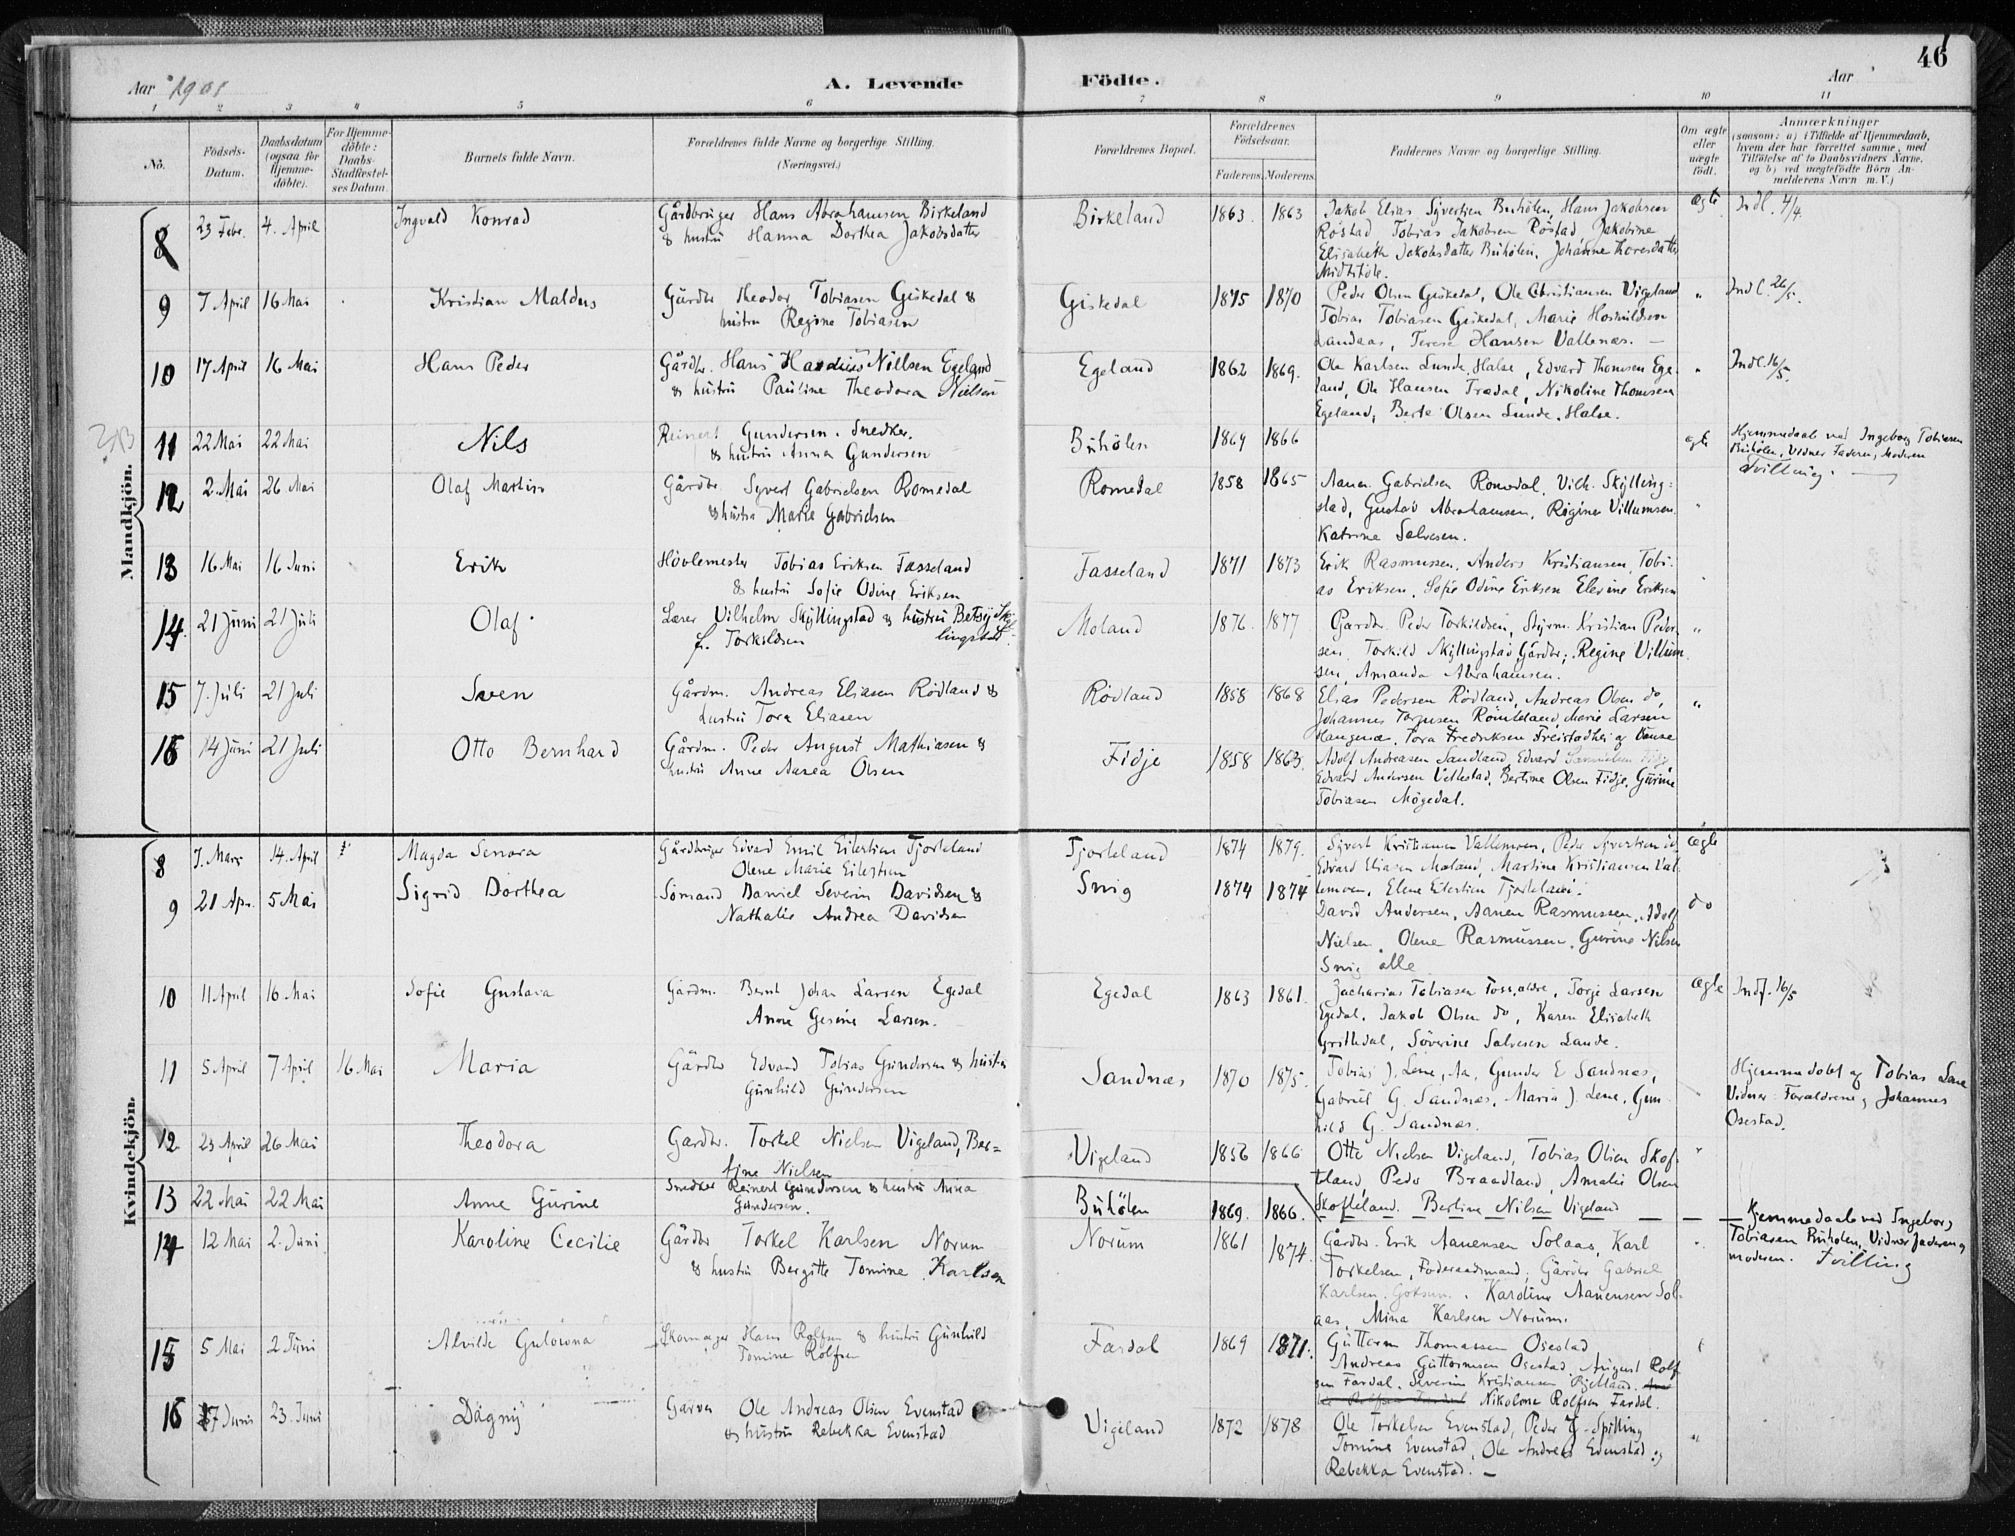 46
Aar 1901
A. Levende
Födte.
Aar
1 2 3 4 5 6 7 8 9 10 11
No.
Födsels-Datum.
Daabsdatum (ogsaa for Hjemme-döbte).
For Hjemme-döbte: Daabs-Stadfæstel-ses Datum
Barnets fulde Navn.
Forældrenes fulde Navne og borgerlige Stilling. (Næringsvei.)
Forældrenes Bopæl.
Forældrenes Födselsaar.
Faderens. Moderens.
Faddernes Navne og borgerlige Stilling.
Om ægte eller uægte födt.
Anmærkninger
(saasom: a) i Tilfælde af Hjemmedaab, hvem der har forrettet samme, med Tilföielse af to Daabsvidners Navne, og b) ved uægtefödte Börn An-melderens Navn m. V.)
Mandkjön.
8 23 Febr. 4. April Ingvald Konrad Gårdbruger Hans Abrahamsen Birkeland
& hustru Hanna Dorthea Jakobsdatter
Birkeland 1863. 1863 Jakob Elias Syvertsen Buhölen, Hans Jakobsen
Röstad Tobias Jakobsen Röstad Jakobine
Elisabeth Jakobsdatter Buhölen, Johanne Thoresdatter
ægte Indl. 4/4.
9 7 April 16 Mai Kristian Maldus Gårdbr Theodor Tobiasen Giskedal &
hustru Regine Tobiasen
Giskedal 1875 1870 Peder Olsen Giskedal, Ole Christiansen Vigeland
Tobias Tobiasen Giskedal, Marie
Landaas, Terese Hansen Vallenæs. —
" Indl. 26/5.
10 17 April 16 Mai Hans Peder Gårdbr. Hans Nillsen Egeland
& hustru Pauline Theodora Nielsen
Egeland 1862 1869. Ole Karlsen Lunde, Halse, Edvard Thomsen Ege-
land, Ole Hansen Trædal, Nikoline Thomsen
Egeland, Berte Olsen Lunde, Halse.
" Indl. 16/5.
11 22 Mai 22 Mai Nils Reinert Gundersen. Snedker.
& hustru Anna Gundersen
Buhölen 1869 1866 ægte Hjemmedaab ved Ingeborg Tobiasen
Buhölen, Vidner Faderen, Moderen
Tvilling. —
12 2. Mai 26 Mai Olaf Martin Gårdbr. Syvert Gabrielsen Romedal
& hustru Marie Gabrielsen
Romedal 1858 1865 Aanen Gabrielsen Romedal, Vilh. Skylling-
stad, Gustav Abrahamsen, Regine Villumsen
Katrine Salvesen.
"
13 16 Mai 16 Juni Erik Hövlemester Tobias Eriksen Fasseland
& hustru Sofie Odine Eriksen
Fasseland 1871 1873 Erik Rasmussen, Anders Kristiansen, Tobi-
as Eriksen, Sofie Odine Eriksen Elevine Eriksen
14 21 Juni 21 Juli Olaf Lærer Vilhelm Skyllingstad & hustru Betsy Skyl-
lingstad
f. Torkildsen
Moland 1876. 1877 Gårdbr. Peder Torkildsen, Styrm. Kristian Peder-
sen, Torkild Skyllingstad, Gårdbr; Regine Villum-
sen, Amanda Abrahamsen.
"
15 7. Juli 21 Juli Sven Gårdm. Andreas Eliasen Rödland &
hustru Tora Eliasen
Rödland 1858 1868 Elias Pedersen Rödland, Andreas Olsen do,
Johannes Torjusen Marie Larsen
Haugenæ, Tora Fredriksen
"
16 14 Juni 21 Juli Otto Bernhard Gårdm. Peder August Mathiasen &
hustru Anne Aasea Olsen
Fidje 1858 1863. Adolf Andreasen Sandland, Edvard
Edvard Andersen Vellestad, Bertine Olsen Fidje, Gurine
Tobiasen Mögedal.
Kvindekjön.
8 7. Mars 14. April Magda Senora Gårdbruger Edvard Emil Eilertsen Tjorteland
Olene Marie Eilertsen
Tjorteland 1874 1879. Syvert Kristiansen Vallemoen, Peder Syvertsen id
Edvard Eliasen Moland, Martine Kristiansen Val-
lemoen, Elene Eilertsen Tjorteland.
ægte
9 21 Apr. 5 Mai Sigrid Dorthea Sömand Daniel Severin Davidsen &
Nathalie Andrea Davidsen
Snig 1874 1874
David Andersen, Aanen Rasmussen, Adolf
Nielsen, Olene Rasmussen, Gurine Nilsen
Snig alle
do
10 11 April 16 Mai Sofie Gustava Gårdm. Bernt Johan Larsen Egedal
Anne Gesine Larsen.
Egedal 1863 1861. Zacharias Tobiasen Torje Larsen
Egedal, Jakob Olsen do, Karen Elisabeth
Söverine Salvesen Lande.
ægte Indf. 16/5
11 5 April 7 April 16 Mai Maria Gårdbr Edvard Tobias Gundersen & hustru
Gunhild Gundersen
Sandnæs 1870 1875. Tobias J. Lene, Aa. Gunder E Sandnæs,
Gabriel G. Sandnæs, Maria J. Lene, Gun-
hild G. Sandnæs.
" Hjemmedöbt af Tobias Lene
Vidner: Forældrene, Johannes
Osestad.
12 23 April 26 Mai Theodora Gårdbr. Torkel Nielsen Vigeland, Ber-
tine Nielsen
Vigeland 1856 1866 Otte Nielsen Vigeland, Tobias Olsen Skof-
teland, Peder Braadland, Amalie Olsen
Skofteland, Bertine Nilsen Vigeland
"
13 22 Mai 22 Mai Anne Gurine Snedker Reinert Gundersen & hustru Anna
Gundersen.
Buhölen 1869. 1866. — — — Hjemmedaab ved Ingeborg
Tobiasen Buhölen, Vidner faderen og
moderen. Tvilling
14 12 Mai 2. Juni Karoline Cecilie Gårdbr Torkel Karlsen Norum
& hustru Bergitte Tomine Karlsen
Norum 1861 1874. Gårdbr. Erik Aanensen Solaas, Karl
Torkelsen, Föderaadsmand, Gårdbr Gabriel
Karlsen Karoline Aanensen Sol-
aas, Mina Karlsen Norum.
"
15 5 Mai 2 Juni Alvilde Gulowna Skomager Hans Rolfsen & hustru Gunhild
Tomine Rolfsen
Fardal 1869 1871. Guttorm Thomassen Osestad
Andreas Guttormsen Osestad August Rolf-
sen Fardal. Severin Kristiansen
Nikoline Rolfsen Fardal.
16 17 Juni 23. Juni Dagny Garver Ole Andreas Olsen Evenstad
& hustru Rebekka Evenstad
Vigeland 1872 1878 Ole Torkelsen Evenstad, Peder Spilling
Tomine Evenstad, Ole Andreas Evenstad og
Rebekka Evenstad. —
"